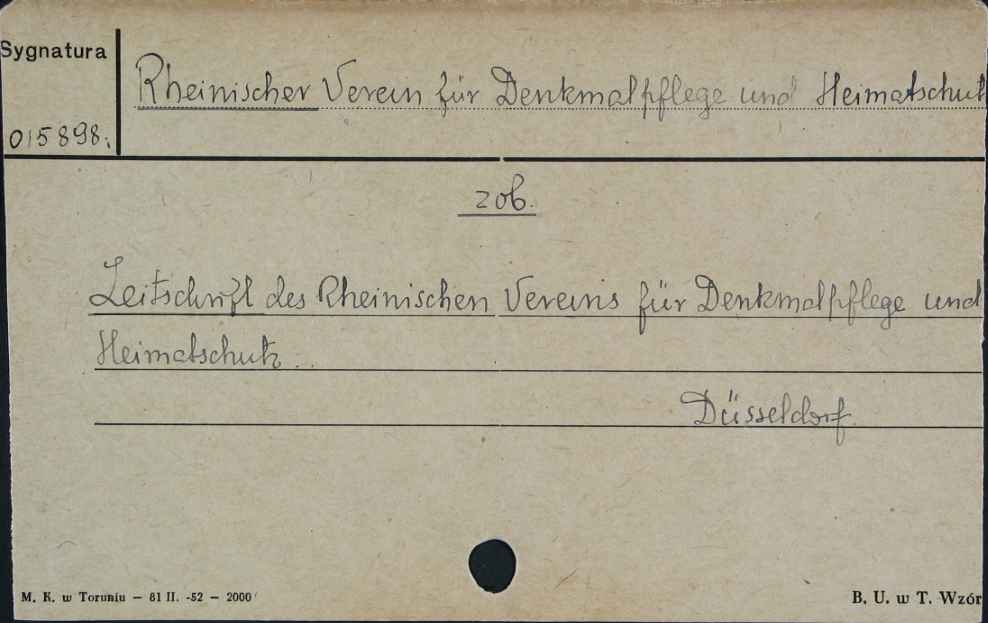 Sygnatura
Rheinischer Verein für Denkmalpflege und Heimatschutz
015898.
zob.
Zeitschrift des Rheinischen Vereins für Denkmalpflege und
Heimatschutz..
Düsseldorf
M. K. w Toruniu — 81 II. -52 — 2000
B. U. w T. Wzór